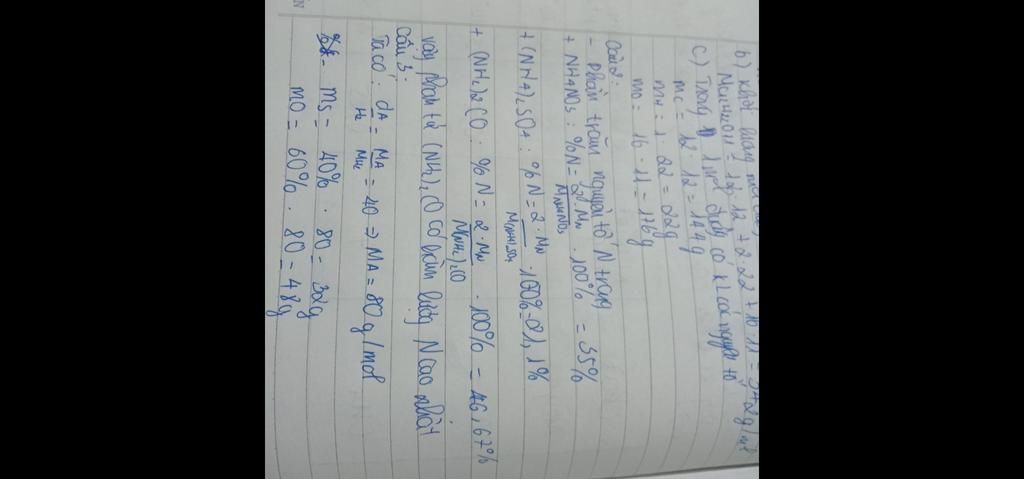 b) Khối lượng mol
MC12H22O11 = 12 . 12 + 2.22 + 16.11 = 342g/mol
c) Trong 1 mol đường có kl các nguyên tố
mC = 12 . 12 = 144g
mH = 1 . 22 = 22g
mO = 16 . 11 = 176g
Câu 2:
- phần trăm nguyên tố N trong
+ NH4NO3 : %N = 2.MN / MNH4NO3 . 100% = 35%
+ (NH4)2SO4 : %N = 2 . MN / M(NH4)2SO4 . 100% = 21,1%
+ (NH2)2CO : %N = 2 . MN / M(NH2)2CO . 100% = 46,67%
vậy phân tử (NH2)2CO có hàm lượng N cao nhất
Câu 3:
Ta có : dA/H2 = MA/MH2 = 40 => MA = 80g/mol
mS = 40% . 80 = 32g
mO = 60% . 80 = 48g